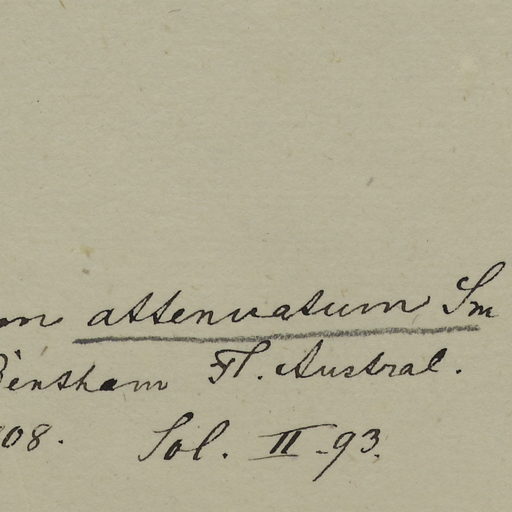 m attenuatum Sm
Bentham Fl. Austral.
08. Sol. II-93.